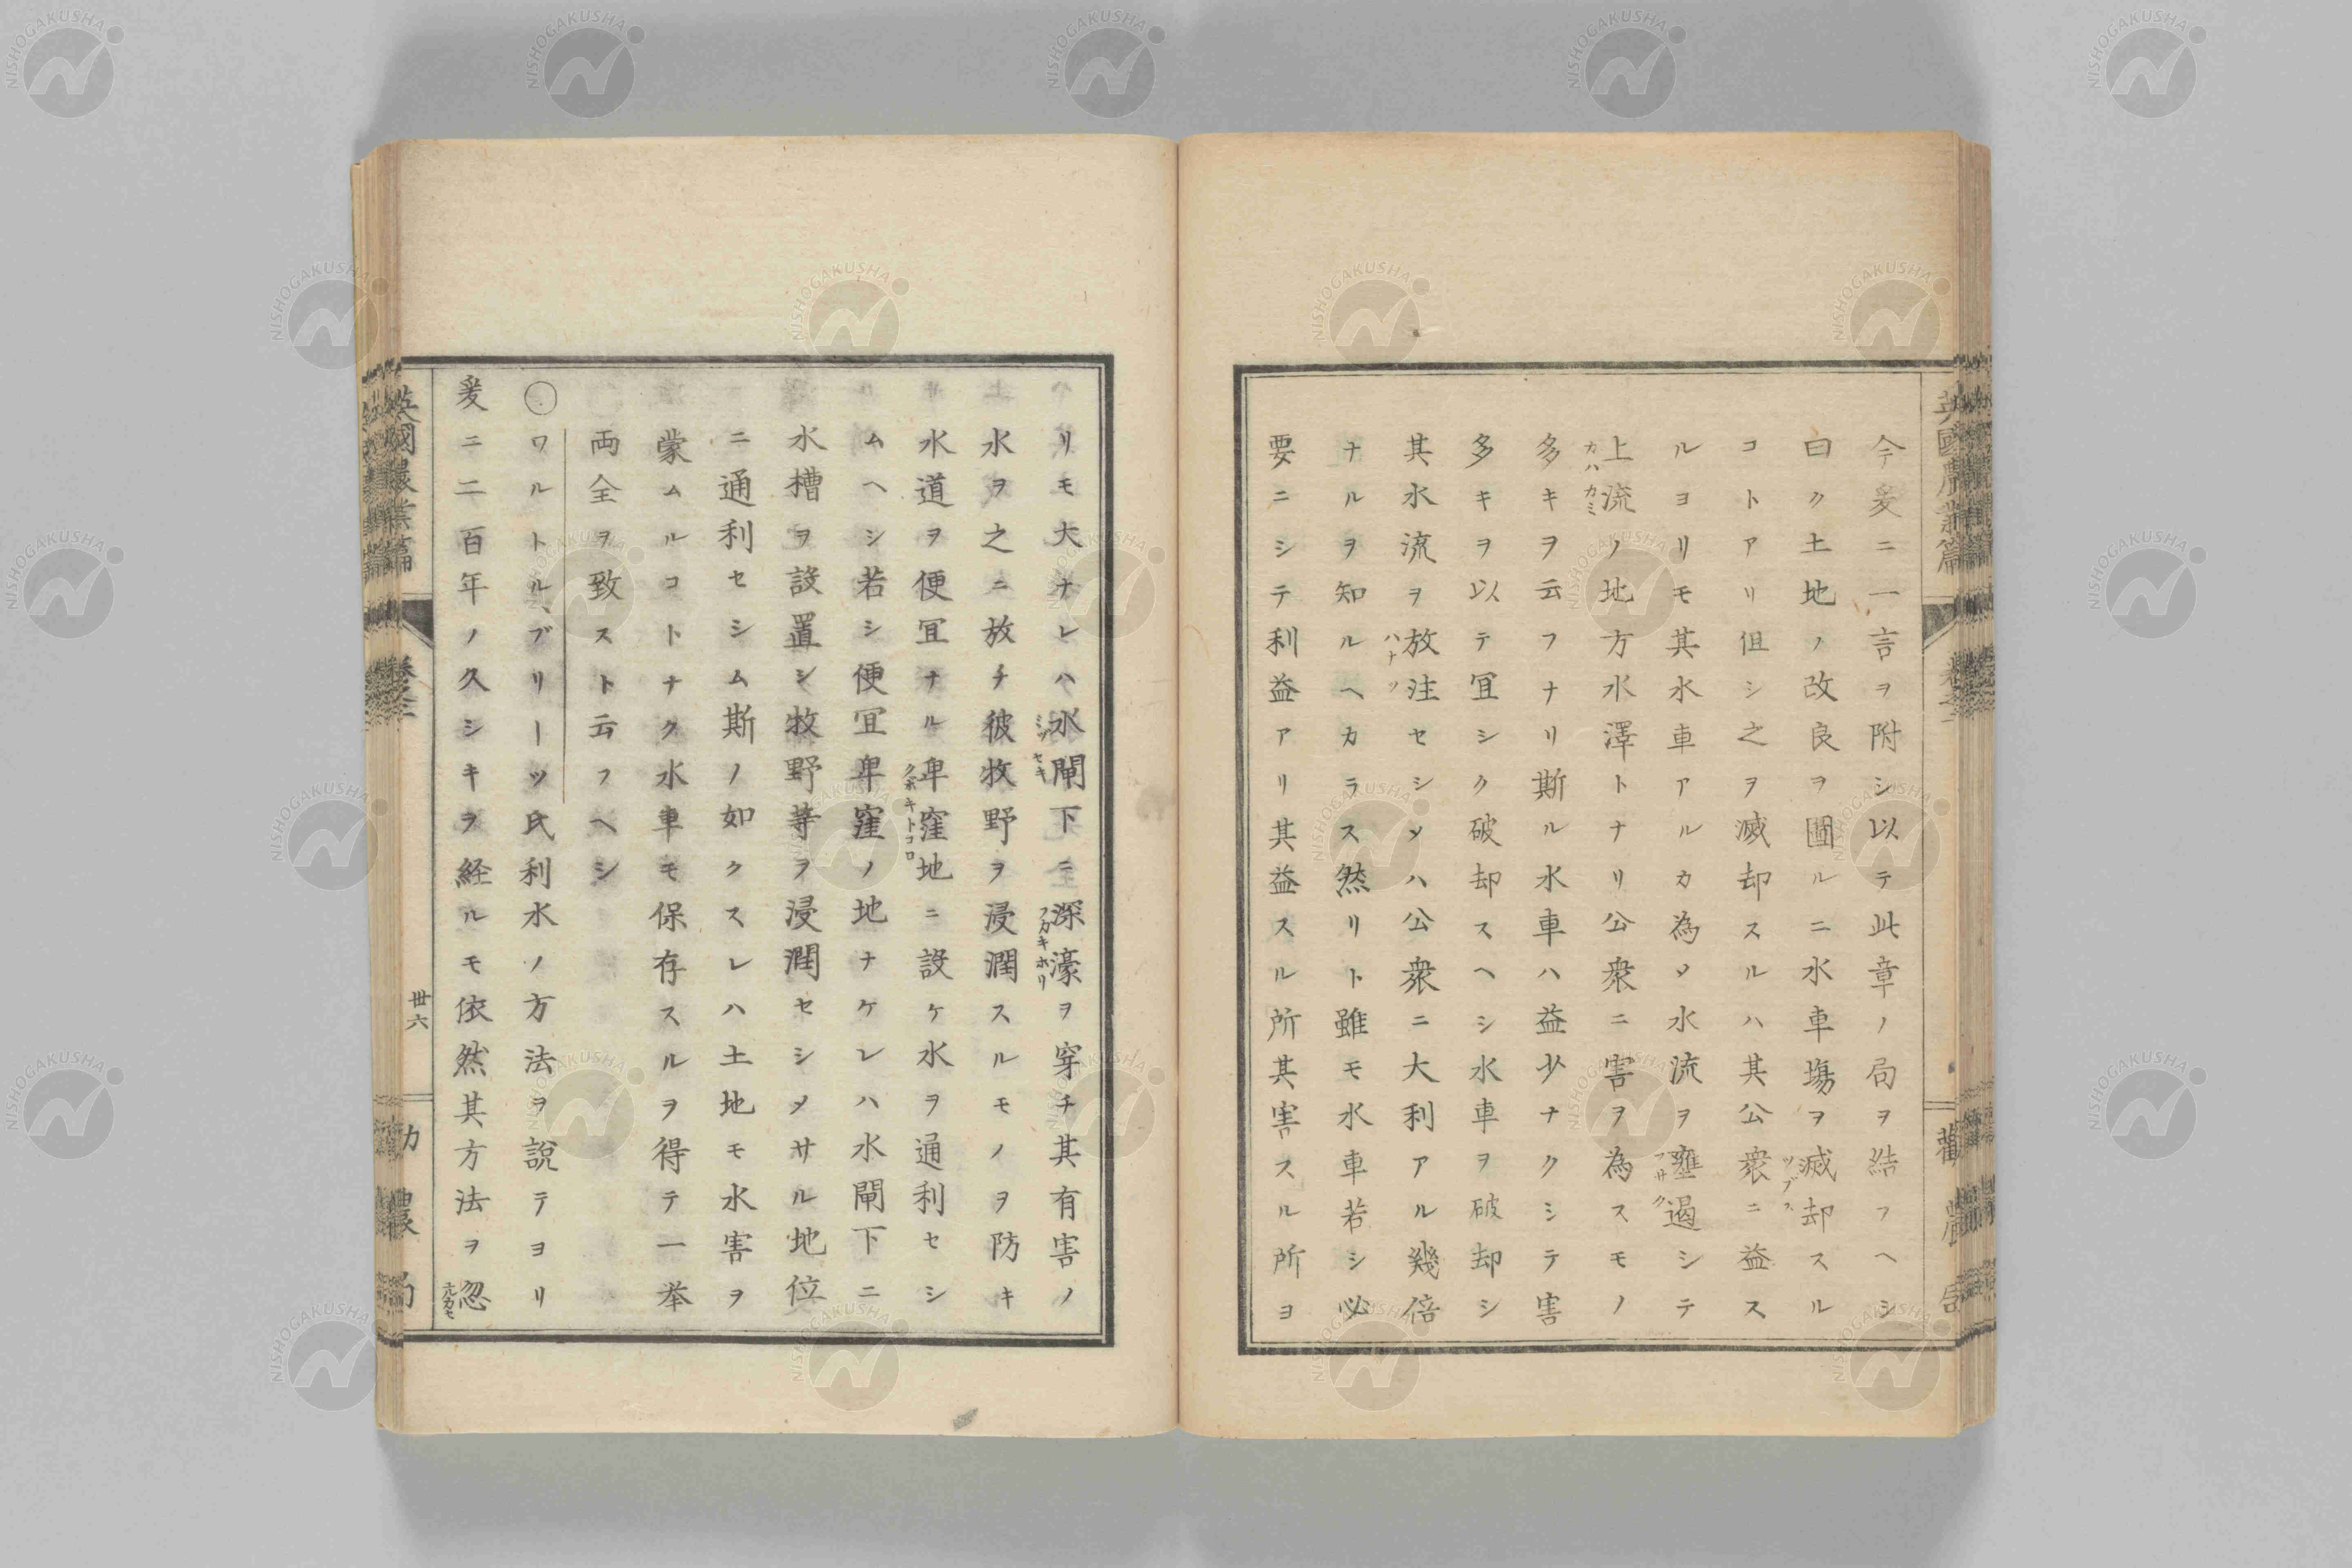 今爰ニ一言ヲ附シ以テ此章ノ局ヲ結フヘシ
曰ク土地ノ改良ヲ圖ルニ水車塲ヲ滅却スル
コトアリ但シ之ヲ滅却スルハ其公衆ニ益ス
ルヨリモ其水車アルカ為メ水流ヲ壅遏シテ
上流ノ地方水澤トナリ公衆ニ害ヲ為スモノ
多キヲ云フナリ斯ル水車ハ益少ナクシテ害
多キヲ以テ冝シク破却スヘシ水車ヲ破却シ
其水流ヲ放注セシメハ公衆ニ大利アル幾倍
ナルヲ知ルヘカラス然リト雖モ水車若シ必
要ニシテ利益アリ其益スル所其害スル所ヨ
リモ大ナレハ水閘下ニ深濠ヲ穿チ其有害ノ
水ヲ之ニ放チ彼牧野ヲ浸潤スルモノヲ防キ
水道ヲ便冝ナル卑窪地ニ設ケ水ヲ通利セシ
ムヘシ若シ便冝卑窪ノ地ナケレハ水閘下ニ
水槽ヲ設置シ牧野等ヲ浸潤セシメサル地位
ニ通利セシム斯ノ如クスレハ土地モ水害ヲ
蒙ムルコトナク水車モ保存スルヲ得テ一挙
両全ヲ致スト云フヘシ
○ワルトル、ブリーツ氏利水ノ方法ヲ說テヨリ
爰ニ二百年ノ久シキヲ経ルモ依然其方法ヲ忽
英國農業篇 卷之二 卅六 勸農局